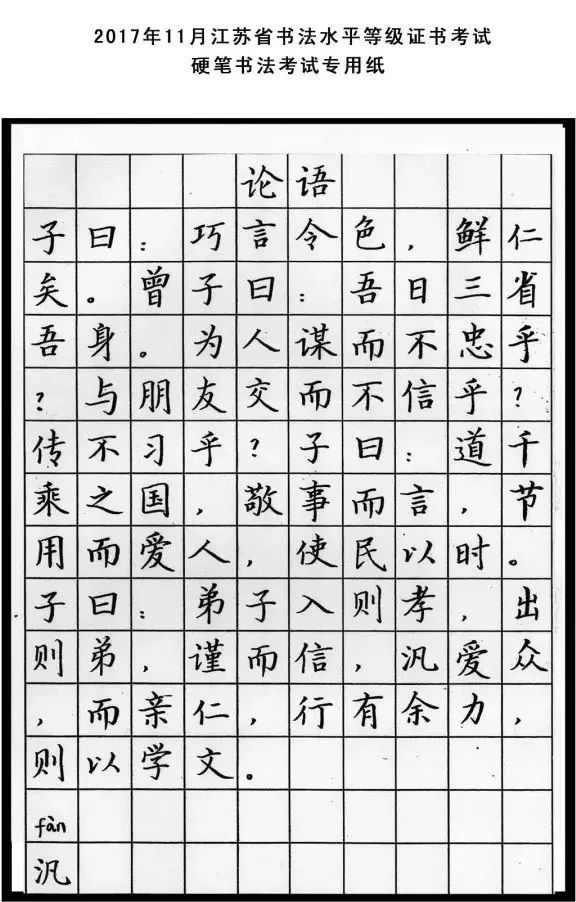 2017年11月江苏省书法水平等级证书考试
硬笔书法考试专用纸
论语
子曰：巧言令色，鲜仁
矣。曾子曰：吾日三省
吾身。为人谋而不忠乎
？与朋友交而不信乎？
传不习乎？子曰：道千
乘之国，敬事而言，节
用而爱人，使民以时。
子曰：弟子入则孝，出
则弟，谨而信，汎爱众
，而亲仁，行有余力，
则以学文。
fàn
汎